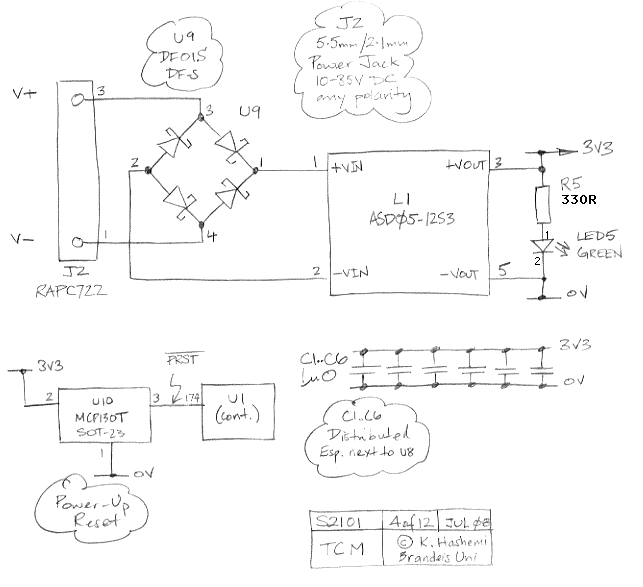 U9
DF01S
DF-S
J2
5.5mm/2.1mm
Power Jack
10-35V DC
any polarity
V+
3
3
U9
2
1
1
+VIN
+VOUT
3
3V3
L1
ASD05-12S3
R5
330R
1
LED5
GREEN
2
V-
1
4
2
-VIN
-VOUT
5
0V
J2
RAPC722
3V3
2
U10
MCP130T
SOT-23
3
PRST
174
U1
(cont.)
1
0V
Power-Up
Reset
C1..C6
1u0
3V3
0V
C1..C6
Distributed
Esp. next to U8
S2101
4 of 12
JUL 08
TCM
© K. Hashemi
Brandeis Uni